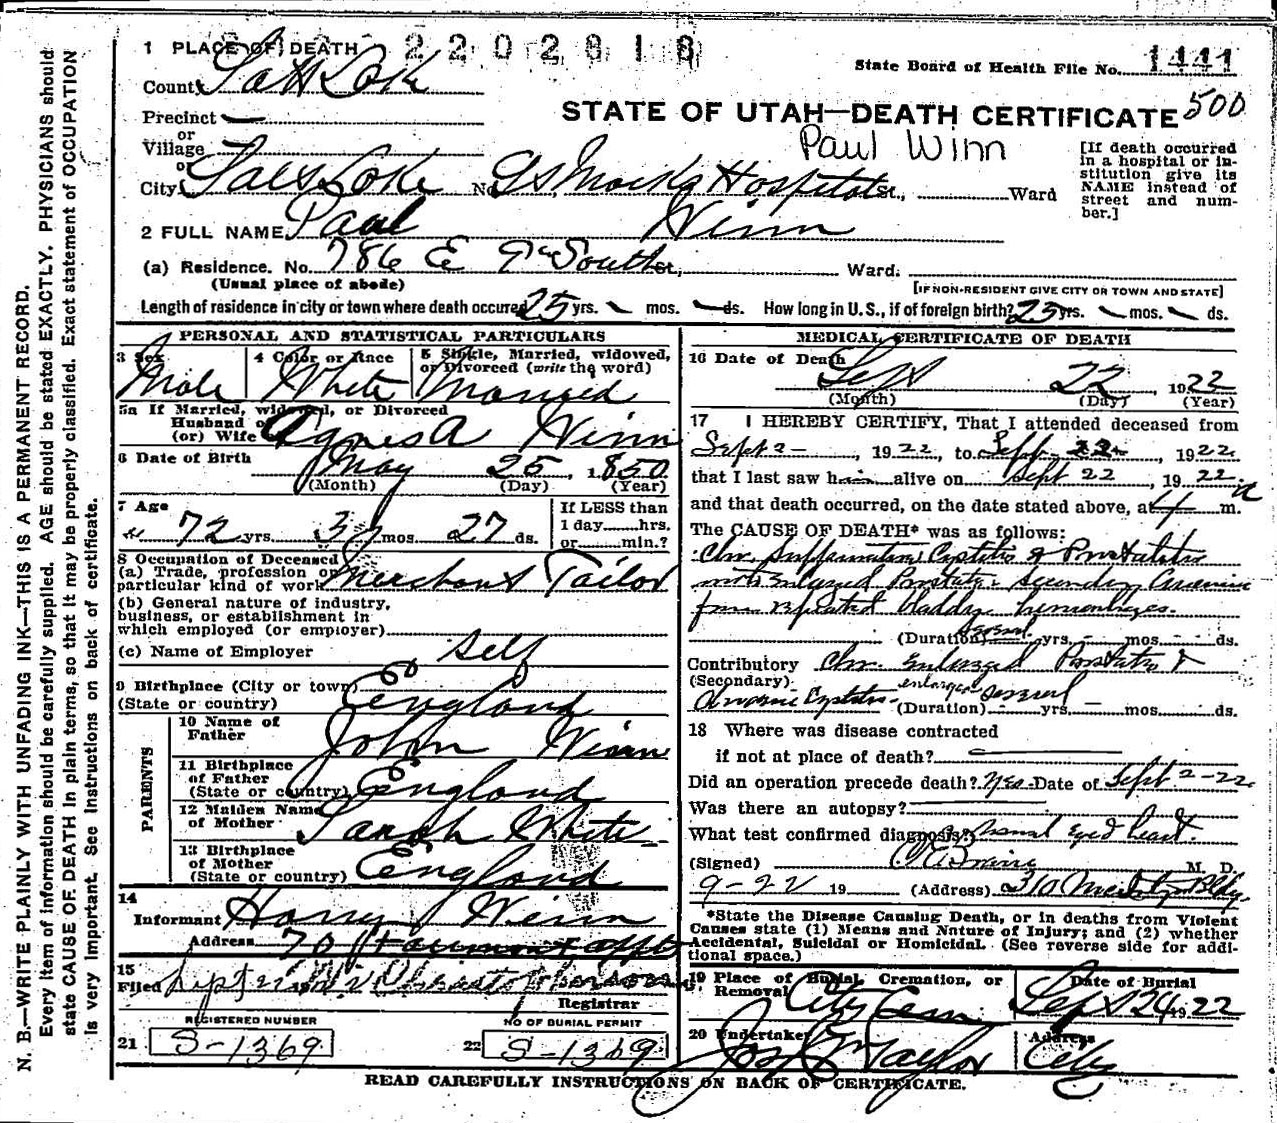 1 PLACE OF DEATH
2202818
State Board of Health File No. 1441
County Salt Lake
STATE OF UTAH—DEATH CERTIFICATE 500
Precinct —
or
Village
Paul Winn
[If death occurred in a hospital or institution give its NAME instead of street and number.]
or
City Salt Lake No. Hospital St., Ward
2 FULL NAME Paul Winn
(a) Residence. No. 786 E 9th South St., Ward.
(Usual place of abode)
[IF NON-RESIDENT GIVE CITY OR TOWN AND STATE]
Length of residence in city or town where death occured 25 yrs. – mos. – ds. How long in U. S., if of foreign birth? 25 yrs. – mos. – ds.
PERSONAL AND STATISTICAL PARTICULARS
3 Sex
Male
4 Color or Race
White
5 Single, Married, widowed, or Divorced (write the word)
Married
5a If Married, widowed, or Divorced
Husband of
(or) Wife Agnes A Winn
6 Date of Birth
May 25, 1850
(Month) (Day) (Year)
7 Age
72 yrs. 3 mos. 27 ds.
If LESS than
1 day......hrs.
or......min.?
8 Occupation of Deceased
(a) Trade, profession or particular kind of work Merchant Tailor
(b) General nature of industry, business, or establishment in which employed (or employer)
(c) Name of Employer Self
9 Birthplace (City or town)
(State or country) England
PARENTS
10 Name of Father John Winn
11 Birthplace of Father
(State or country) England
12 Maiden Name of Mother Sarah White
13 Birthplace of Mother
(State or country) England
14
Informant Harry Winn
Address 701
15
Filed Sept
Registrar
REGISTERED NUMBER
21 S-1369
NO OF BURIAL PERMIT
22 S-1369
MEDICAL CERTIFICATE OF DEATH
16 Date of Death
Sept 22, 1922
(Month) (Day) (Year)
17 I HEREBY CERTIFY, That I attended deceased from
Sept 2 –, 1922, to Sept 22, 1922
that I last saw him alive on Sept 22, 1922
and that death occurred, on the date stated above, at 4 a m.
The CAUSE OF DEATH* was as follows:
Chr. Suppurative Cystitis & Prostatitis
Enlarged Prostate – secondary Anaemia
from repeated bladder hemorrhages.
(Duration) yrs. – mos. – ds.
Contributory Chr. Enlarged Prostate &
(Secondary)
Chronic Cystitis – several
(Duration) – yrs. – mos. ds.
18 Where was disease contracted
if not at place of death?
Did an operation precede death? Yes Date of Sept 2-22
Was there an autopsy?
What test confirmed diagnosis?
(Signed) M. D.
9-22 19 (Address) 310 Bldg
*State the Disease Causing Death, or in deaths from Violent Causes state (1) Means and Nature of Injury; and (2) whether Accidental, Suicidal or Homicidal. (See reverse side for additional space.)
19 Place of Burial, Cremation, or Removal City Cem
Date of Burial
Sept 24 1922
20 Undertaker Taylor
Address
City
READ CAREFULLY INSTRUCTIONS ON BACK OF CERTIFICATE.
N. B.—WRITE PLAINLY WITH UNFADING INK—THIS IS A PERMANENT RECORD.
Every item of information should be carefully supplied. AGE should be stated EXACTLY. PHYSICIANS should
state CAUSE OF DEATH in plain terms, so that it may be properly classified. Exact statement of OCCUPATION
is very important. See instructions on back of certificate.